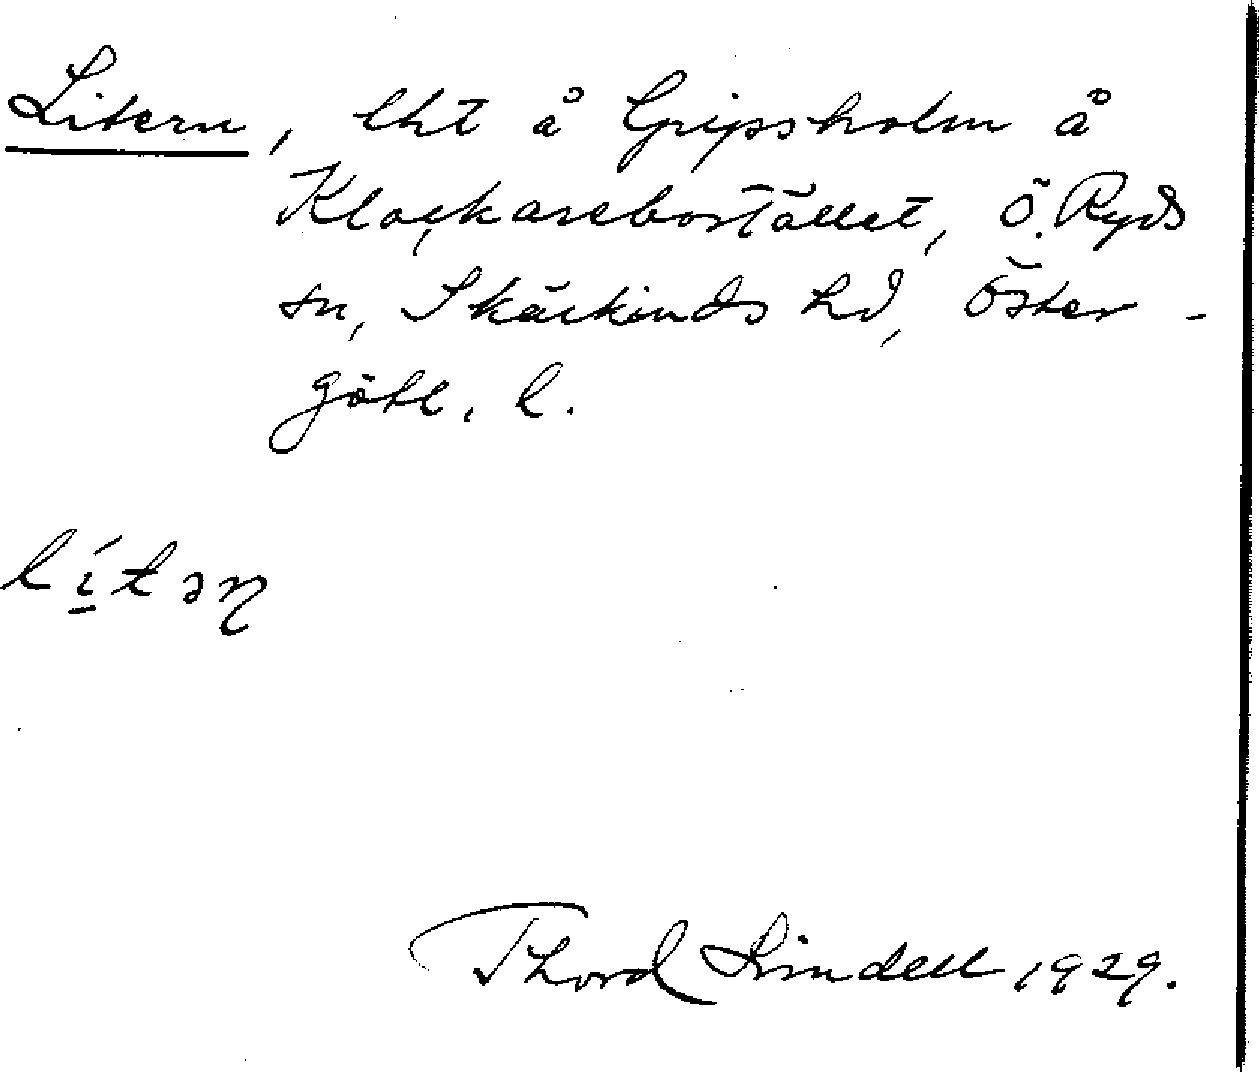 Litern, lht å Gripsholm å
Klockarebostället, Ö. Ryds
sn, Skärkinds hd, Öster-
götl. l.
lítəɳ
Thord Lindell 1929.